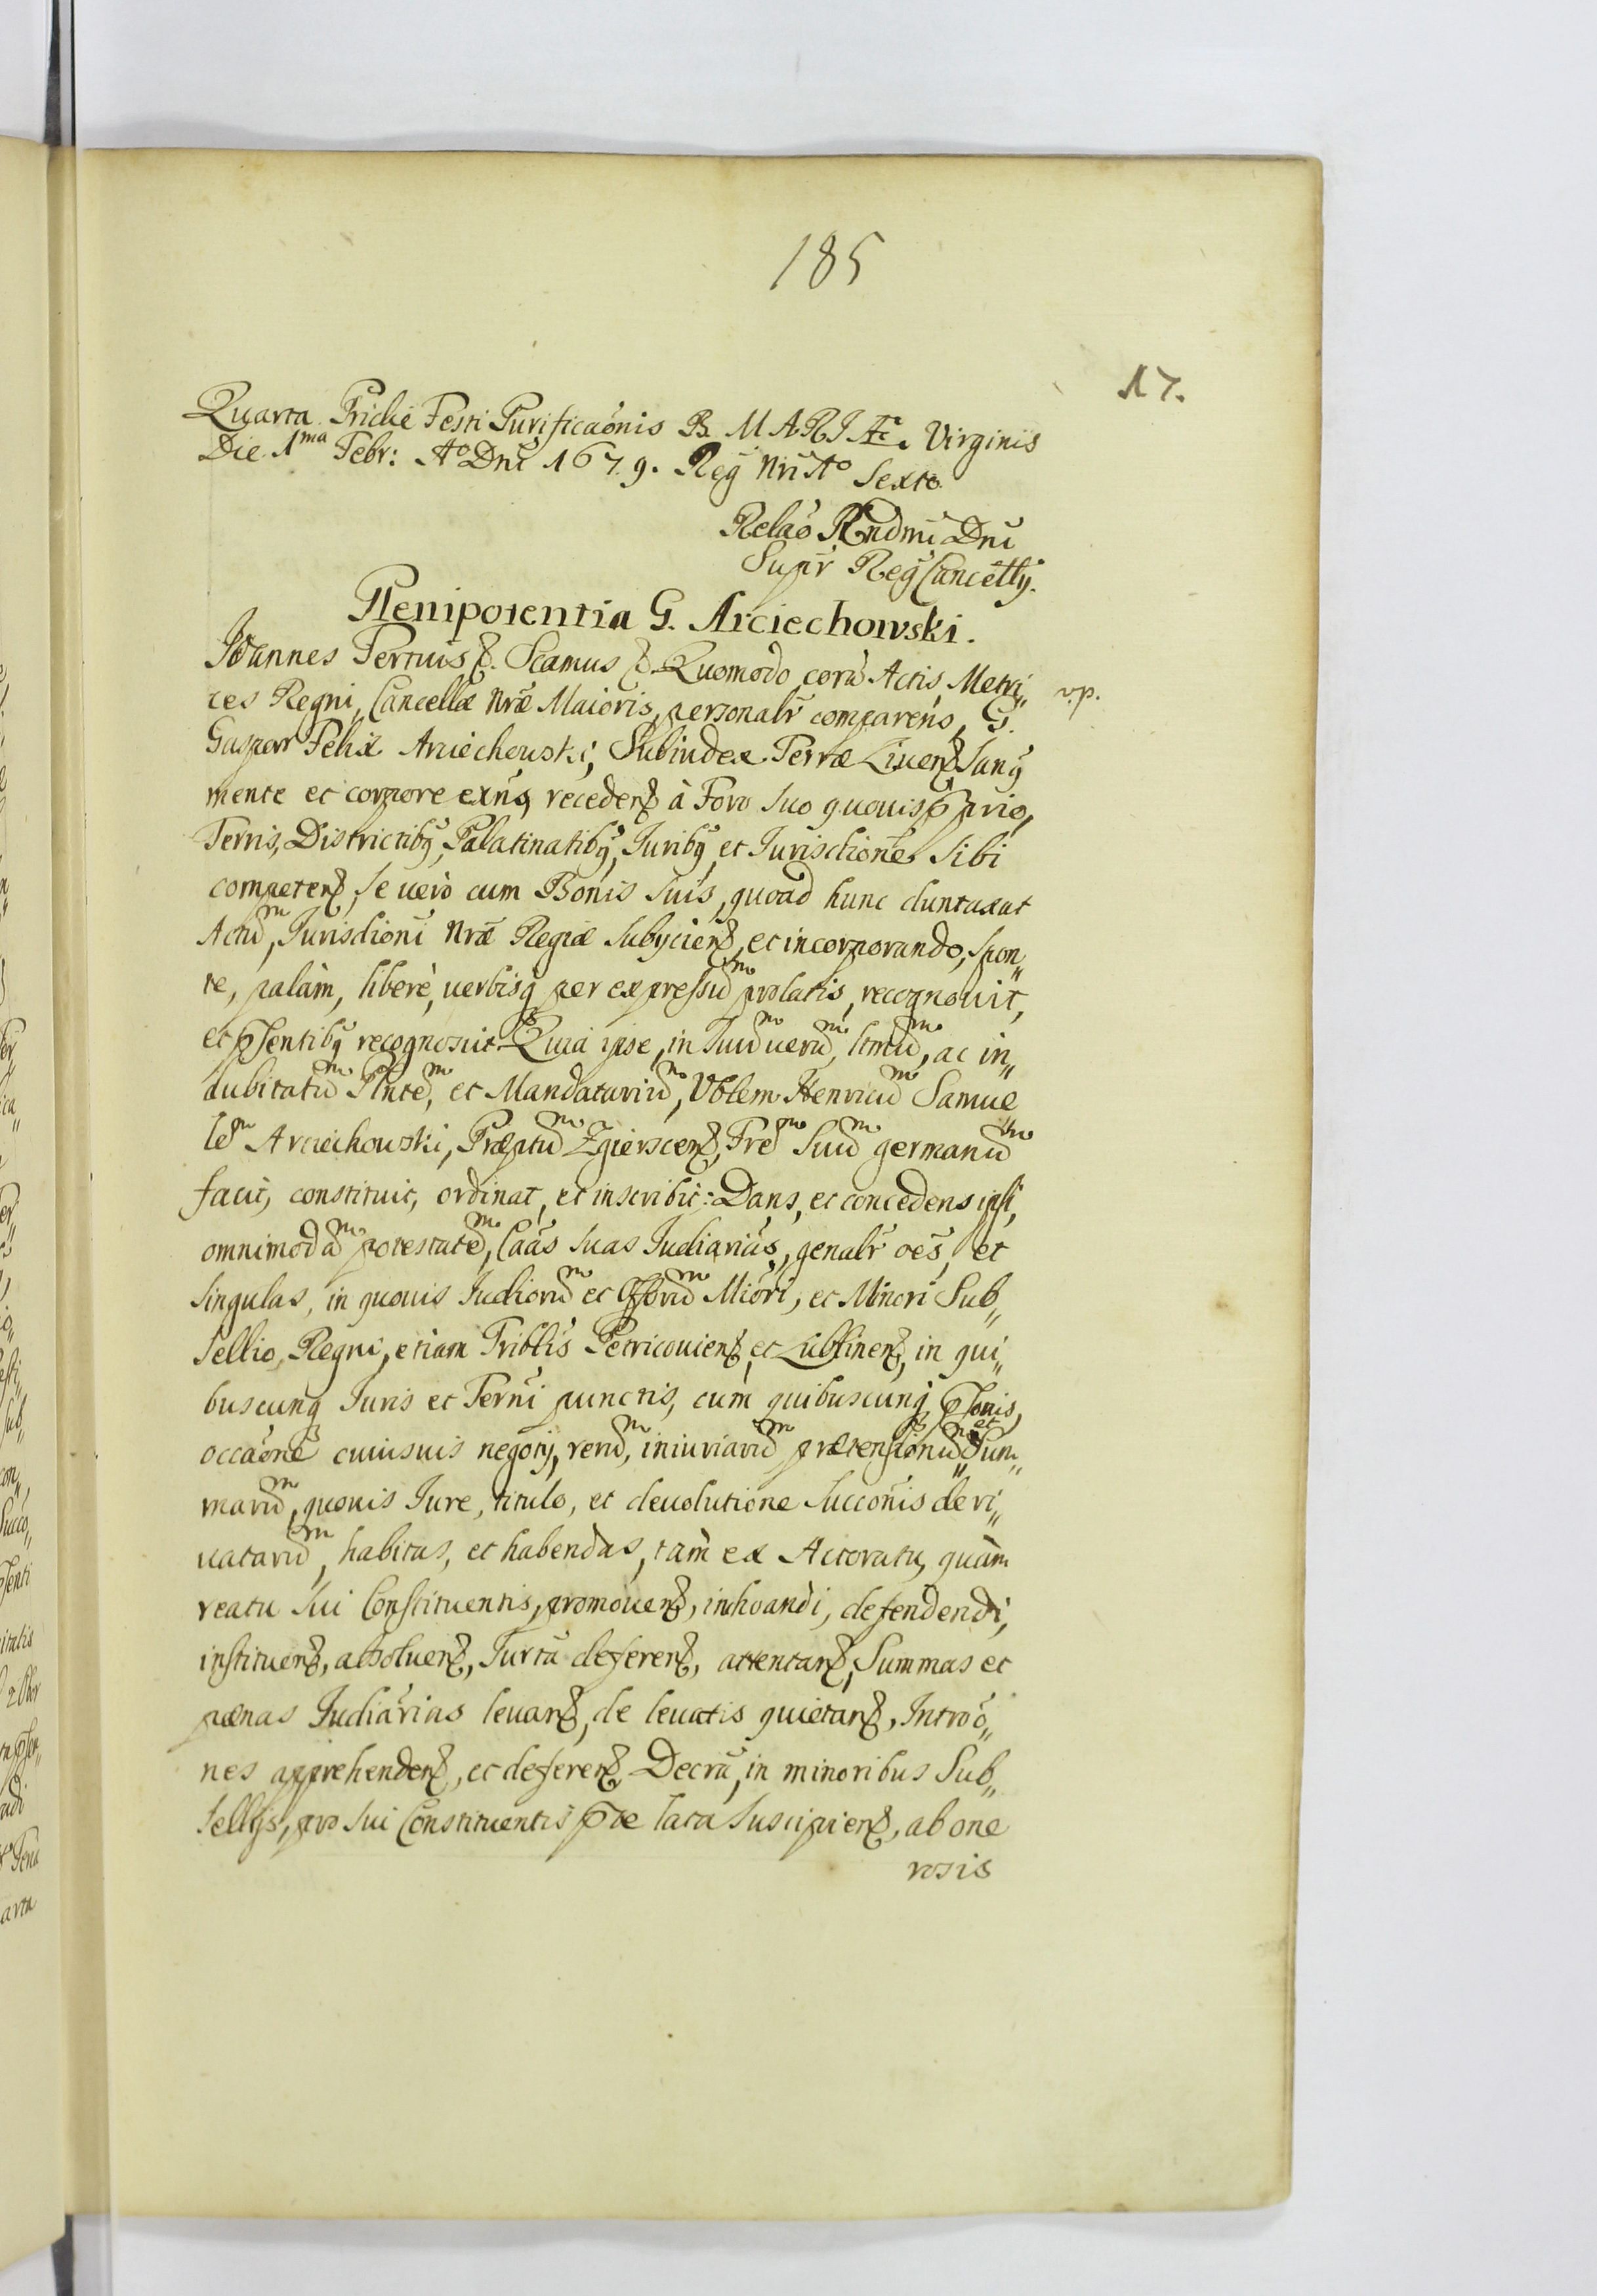 185
17.
Quarta Pridie Festi Purificaõnis B. MARIÆ. Virginis
Die 1ma Febr: Ao Dni 1679. Reg Nri Ao Sexto.
Relaõ Rndmi Dni
Supr Reg Cancellÿ.
Plenipotentia G. Arciechowski.
Joannes Tertius &. Scamus & Quomodo corã Actis Metri„
ces Regni, Cancellæ Nræ Maioris, personalr comparens, G. v.p.
Gaspar Felix Arciechouski, Subiudex Terræ Liuens, Sanq
mente et corpore exñs, recedens à Foro suo quouis pprio,
Terris, Districtibq, Palatinatibq, Juribq et Jurisdione sibi
competens, se uerò cum Bonis suis, quoad hunc duntaxat
Actum, Jurisdioni Nræ Regiæ subÿciens, et incorporando, spon„
te, palàm, liberè, uerbisq per expressum prolatis, recognouit,
et pñsentibq recognoscit. Quia ipse, in Suum uerum, ltmum, ac in„
dubitatum Plntem, et Mandatarium, Vblem Henricum Samue
lem Arciechouski, Præptum Zgierscens, Frem Suum germanum
facit, constituit, ordinat, et inscribit: Dans, et concedens ipsi,
omnimodam potestatem, Caãs suas Judiarias, genalr oẽs, et
singulas, in quouis Judiorum et Offõrum Miori, et Minori Sub„
sellio, Regni, etiam Triblis Petricouiens, et Lublinens, in qui„
buscunq Juris et Termi punctis, cum quibuscunq psonis,
occaõne cuiusuis negotÿ, rerum, iniuriarum prætensionum et Sum„
marum, quouis Jure, titulo, et deuolutione Succonis deri„
uatarum, habitas, et habendas, tàm ex Actoratu, quàm
reatu sui Constituentis, promouens, inchoandi, defendendi,
instituens, absoluens, Jurta deferens, attentans, Summas et
pænas Judiarias leuans, de leuatis quietans, Introõ„
nes apprehendens, et deferens, Decrã, in minoribus Sub„
sellÿs, pro sui Constituentis pte lata suscipiens, ab one
rosis